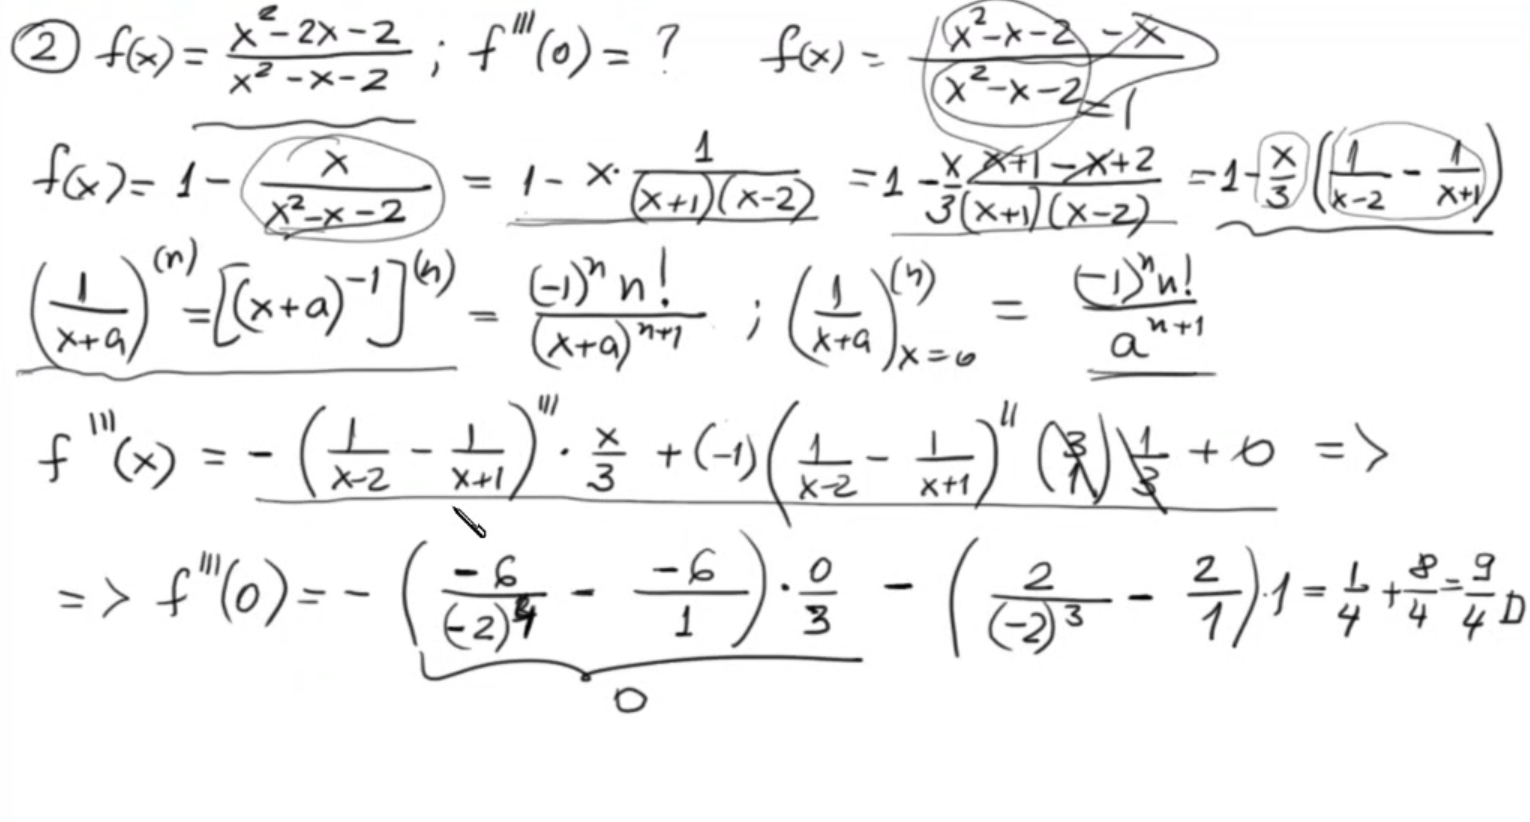 ② f(x) = (x² - 2x - 2)/(x² - x - 2) ; f'''(0) = ? f(x) = (x² - x - 2 - x)/(x² - x - 2) = 1
f(x) = 1 - x/(x² - x - 2) = 1 - x · 1/((x+1)(x-2)) = 1 - x/3 (x+1 - x+2)/((x+1)(x-2)) = 1 - x/3 (1/(x-2) - 1/(x+1))
(1/(x+a))^(n) = [(x+a)^-1]^(n) = (-1)^n n!/(x+a)^(n+1) ; (1/(x+a))^(n)_x=0 = (-1)^n n!/a^(n+1)
f'''(x) = - (1/(x-2) - 1/(x+1))''' · x/3 + (-1)(1/(x-2) - 1/(x+1))'' (3/1) 1/3 + 0 =>
=> f'''(0) = - (-6/(-2)^4 - -6/1) · 0/3 - (2/(-2)^3 - 2/1) · 1 = 1/4 + 8/4 = 9/4 D
0